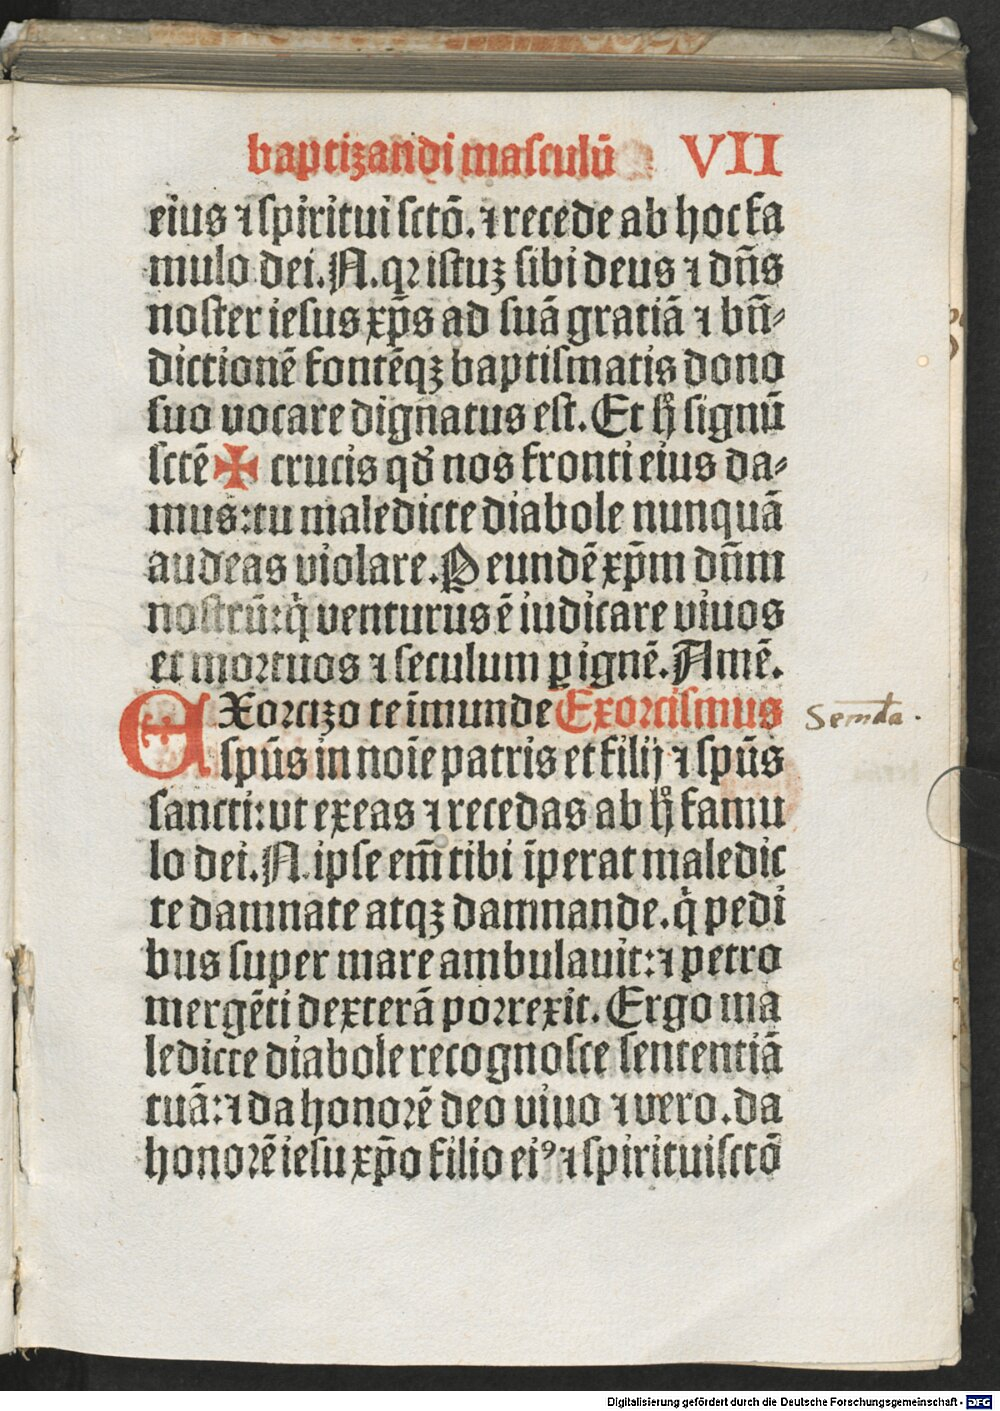 baptizandi masculū VII
eius ⁊ spiritui sctō. ⁊ recede ab hoc fa
mulo dei. N. qꝛ istuꝫ sibi deus ⁊ dn̄s
noster iesus xp̄s ad suā gratiā ⁊ bn̄⸗
dictionē fontēqꝫ baptismatis dono
suo vocare dignatus est. Et hͦ signū
sctē ✠ crucis qđ nos fronti eius da⸗
mus: tu maledicte diabole nunquā
audeas violare. P eundē xp̄m dn̄m
nostrū: qͥ venturus ē iudicare viuos
et moꝛtuos ⁊ seculum ꝑ ignē. Amē.
EXoꝛcizo te īmunde Exoꝛcismus
spūs in noīe patris et filij ⁊ spūs
sancti: ut exeas ⁊ recedas ab hͦ famu
lo dei. N. ipse em̄ tibi īperat maledic
te damnate atqꝫ damnande. qͥ pedi
bus super mare ambulauit: ⁊ petro
mergēti dexterā poꝛrexit. Ergo ma
ledicte diabole recognosce sententiā
tuā: ⁊ da honoꝛē deo viuo ⁊ vero. da
honoꝛē iesu xp̄o filio eiꝰ ⁊ spiritui sctō
Semda.
Digitalisierung gefördert durch die Deutsche Forschungsgemeinschaft - DFG